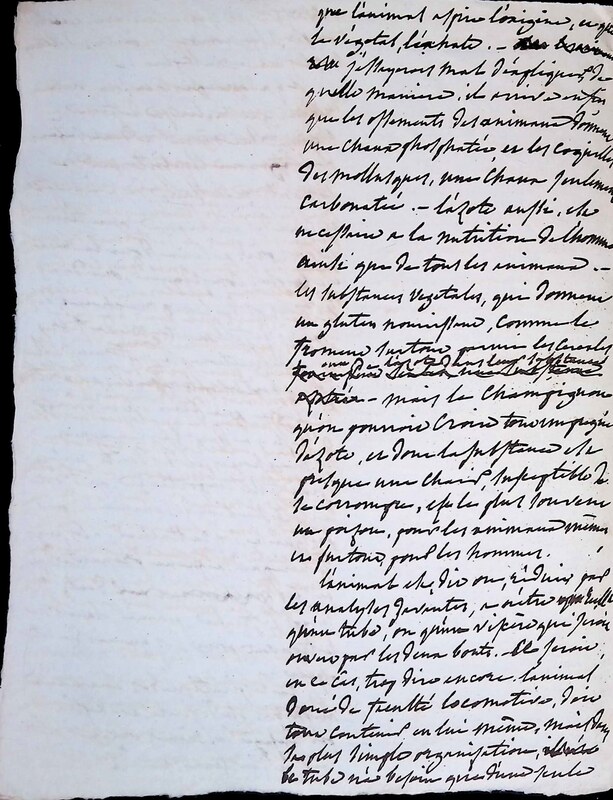 que l'animal aspire l'oxigène, et que
le végétal l'exhale. -
j'essayerois mal d'expliquer, de
quelle manière, il arrive enfin
que les ossements des animaux donnent
une chaux phosphatée, et les coquilles
des mollusques, une chaux seulement
carbonatée. - l'azote aussi, est
necessaire a la nutrition de l'homme
ainsi que de tous les animaux -
les substances vegetales, qui donnent
un gluten nourrissant, comme le
froment surtout parmi les cereales
ont de l'azote dans leurs substances
- mais le champignon
qu'on pourroit croire tout impregné
d'azote, et dont la substance est
presque une chair, susceptible de
se corrompre, est le plus souvent
un poison, pour les animaux mêmes
et surtout pour les hommes.
l'animal est, dit on, réduit par
les analystes savantes, a n'être
qu'un tube, ou qu'un viscère que seroit
ouvert par les deux bouts. - Ce seroit,
en ce cas, trop dire encore. l'animal
doué de faculté locomotive, doit
tout contenir en lui même, mais dans
la plus simple organisation,
le tube n'a besoin que d'une seule